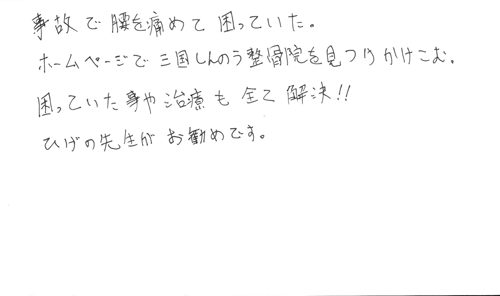 事故で腰を痛めて困っていた。
ホームページで三国しんのう整骨院を見つけかけこむ。
困っていた事や治療も全て解決!!
ひげの先生がお勧めです。